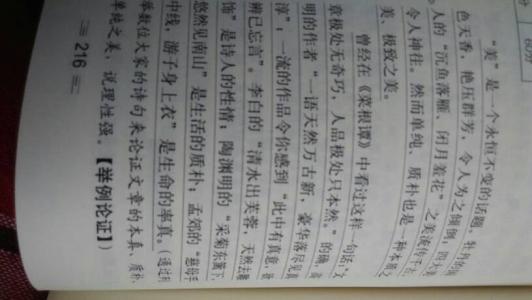 “美”是一个永恒不变的话题。牡丹的
色天香、艳压群芳，令人为之倾倒，四大
人的“沉鱼落雁、闭月羞花”之美流传千古
令人神往。然而单纯、质朴也是一种本真之
美、极致之美。
曾经在《菜根谭》中看过这样一句话“文
章极处无奇巧，人品极处只本然。”的确，高
明的作者“一语天然万古新，豪华落尽见真
淳”，一流的作品令你感到“此中有真意，欲
辨已忘言”。李白的“清水出芙蓉，天然去雕
饰”是诗人的性情；陶渊明的“采菊东篱下，
悠然见南山”是生活的质朴；孟郊的“慈母手
中线，游子身上衣”是生命的率真。（通过列
举数位大家的诗句来论证文章的本真、质朴、
单纯之美，说理性强。【举例论证】）
216